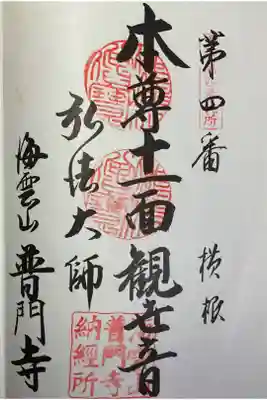 第四番
横根
本尊十一面観世音
弘法大師
海雲山
普門寺
普門寺
納経所